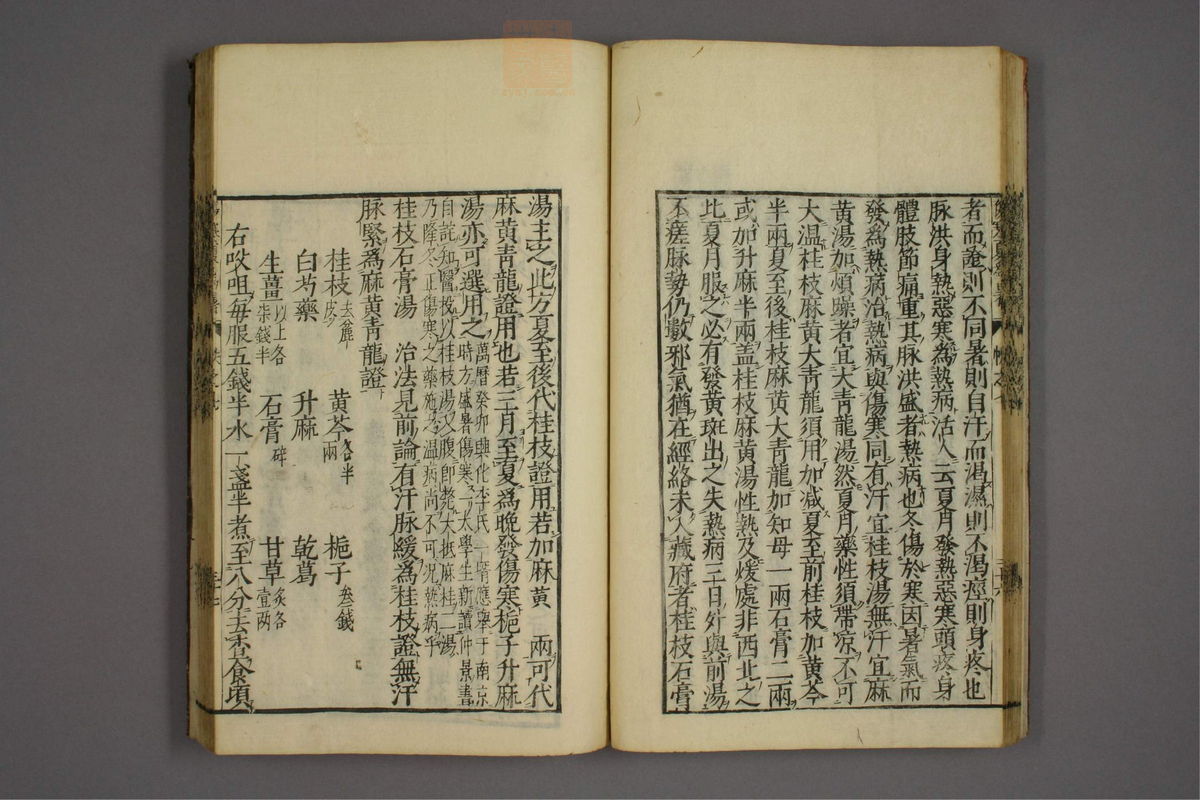 者而證則不同暑則自汗而渴濕則不渴痙則身疼也
脉洪身熱惡寒為熱病活人云夏月發熱惡寒頭疼身
體肢節痛重其脉洪盛者熱病也冬傷於寒因暑氣而
發為熱病治熱病與傷寒同有汗宜桂枝湯無汗宜麻
黃湯加煩躁者宜大青龍湯然夏月藥性須帶凉不可
大温桂枝麻黃大青龍須用加减夏至前桂枝加黃芩
半兩夏至後桂枝麻黃大青龍加知母一兩石膏二兩
或加升麻半兩蓋桂枝麻黃湯性熱及煖處非西北之
此夏月服之必有發黃斑出之失熱病三日外與前湯
不瘥脉勢仍數邪氣猶在經絡未入藏府者桂枝石膏
三十六
湯主之此方夏至後代桂枝證用若加麻黃 兩可代
麻黃青龍證用也若三月至夏為晚發傷寒梔子升麻
湯亦可選用之
萬曆癸卯興化李氏一壻應舉于南京
時方盛暑傷寒一太學生新讀仲景書
自詫知醫投以桂枝湯入腹即斃大抵麻桂二湯
乃隆冬正傷寒之藥施之温病尚不可况熱病乎
桂枝石膏湯 治法見前論有汗脉緩為桂枝證無汗
脉緊為麻黃青龍證
桂枝去麄皮 黃芩各半兩 梔子叁錢
白芍藥 升麻 乾葛
生薑以上各柒錢半 石膏碎 甘草炙各壹两
右㕮咀每服五錢半水一盞半煮至八分去柤食頃
三十七